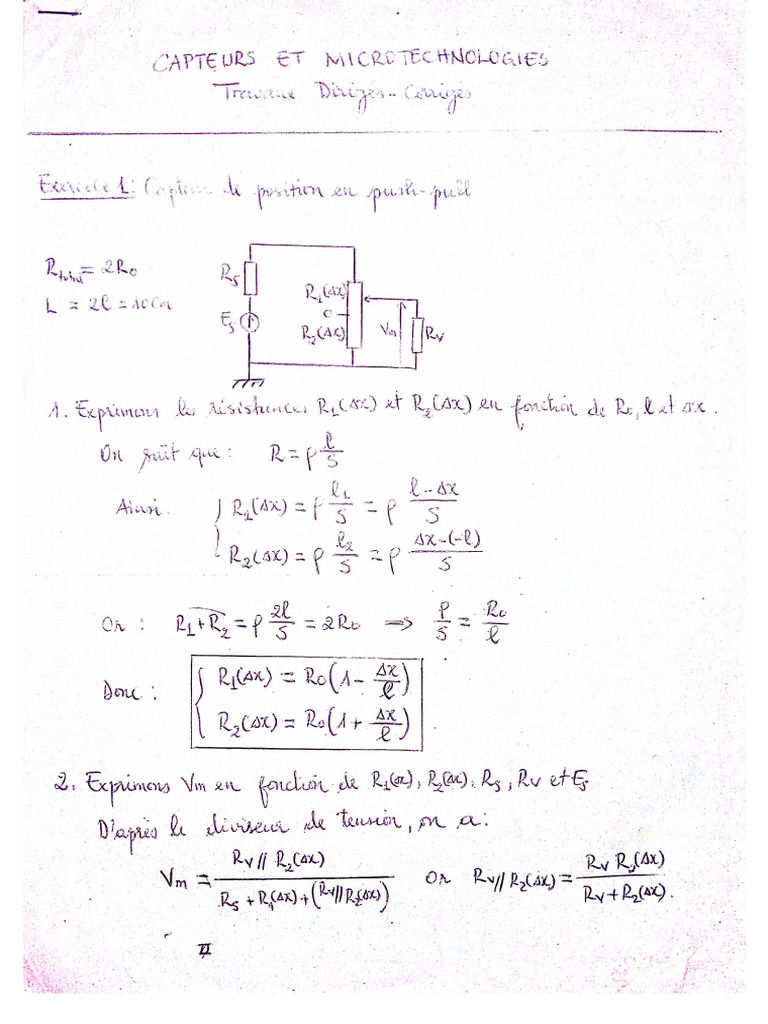 CAPTEURS ET MICROTECHNOLOGIES
Travaux Dirigés - Corrigés
Exercice 1: Capteur de position en push-pull
R_total = 2R0
L = 2l = 10cm
Rs
Es
R1(Δx)
0
R2(Δx)
Vm
Rv
1. Exprimons les résistances R1(Δx) et R2(Δx) en fonction de R0, l et Δx.
On sait que : R = ρ l/S
Ainsi
R1(Δx) = ρ l1/S = ρ (l-Δx)/S
R2(Δx) = ρ l2/S = ρ (Δx-(-l))/S
Or : R1+R2 = ρ 2l/S = 2R0 => ρ/S = R0/l
Donc :
R1(Δx) = R0(1 - Δx/l)
R2(Δx) = R0(1 + Δx/l)
2. Exprimons Vm en fonction de R1(Δx), R2(Δx), Rs, Rv et Es
D'après le diviseur de tension, on a :
Vm = Rv//R2(Δx) / (Rs + R1(Δx) + (Rv//R2(Δx))) Or Rv//R2(Δx) = Rv R2(Δx) / (Rv + R2(Δx)).